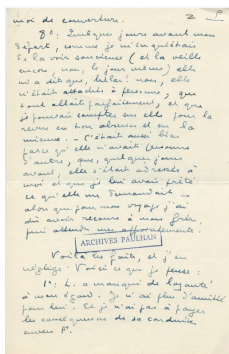 moi de couverture. 2
8°: Quelques jours avant mon
départ, comme je m'inquiétais
de la voir soucieuse (et la veille
encore, non, le jour même) elle
m'a dit que, hélas! non, elle
n'était attachée à personne, que
tout allait parfaitement, et que
je pouvais compter sur elle pour la
revue en ton absence et en la
mienne. – C'était aussi bien
parce qu'elle n'avait personne
d'autre, que, quelques jours
avant, elle s'était adressée à
moi et que je lui avais prêté
ce qu'elle me demandait
alors que pour mon voyage j'ai
dû avoir recours à mon frère,
ARCHIVES PAULHAN
Voilà les faits, et j'en
néglige. Voici ce que je pense:
1°: L. a manqué de loyauté
à mon égard. Je n'ai plus d'amitié
pour lui. Et je n'ai pas à payer
les conséquences de sa conduite